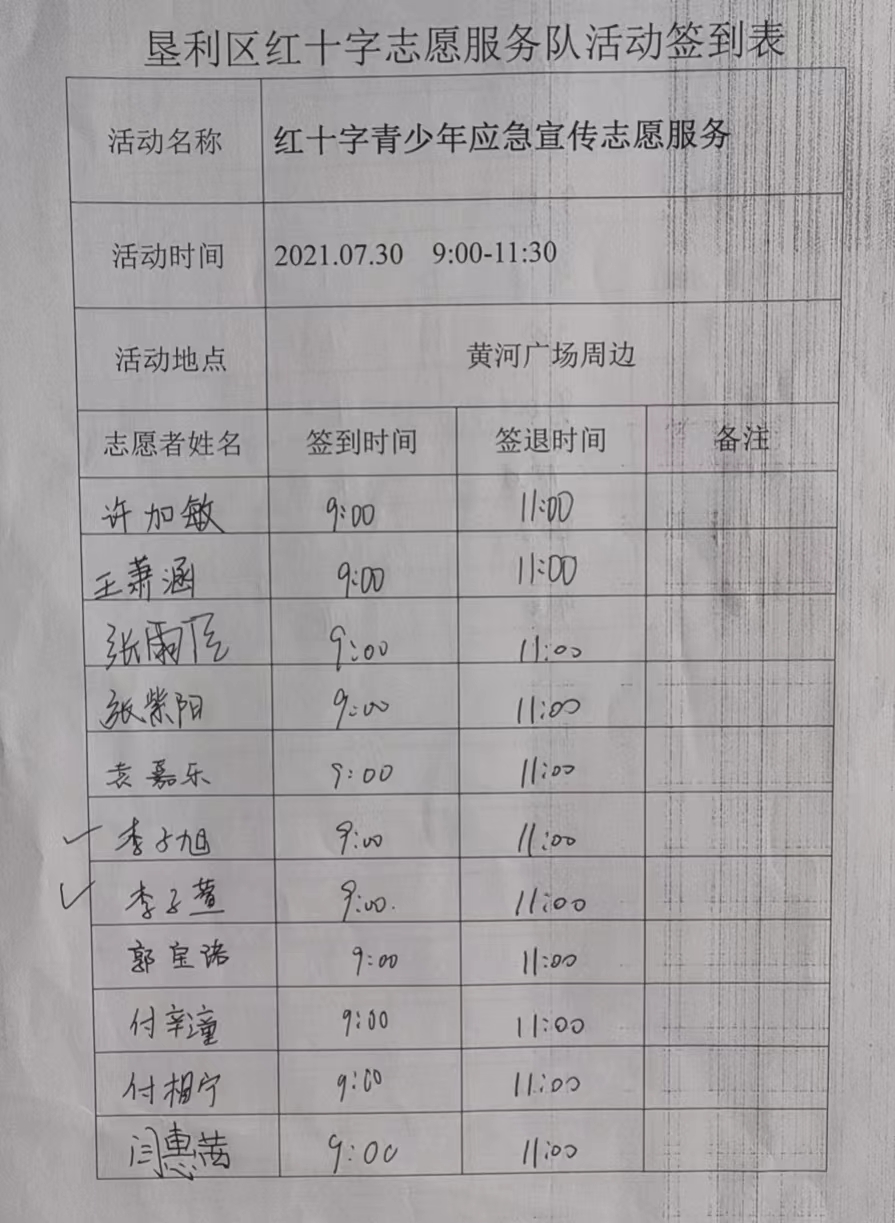 垦利区红十字志愿服务队活动签到表
活动名称 红十字青少年应急宣传志愿服务
活动时间 2021.07.30 9:00-11:30
活动地点 黄河广场周边
志愿者姓名 签到时间 签退时间 备注
许加敏 9:00 11:00
王萧涵 9:00 11:00
张雨 9:00 11:00
张紫阳 9:00 11:00
袁嘉乐 9:00 11:00
李子旭 9:00 11:00
李子萱 9:00 11:00
郭宝 9:00 11:00
付辛潼 9:00 11:00
付相宁 9:00 11:00
闫惠茜 9:00 11:00